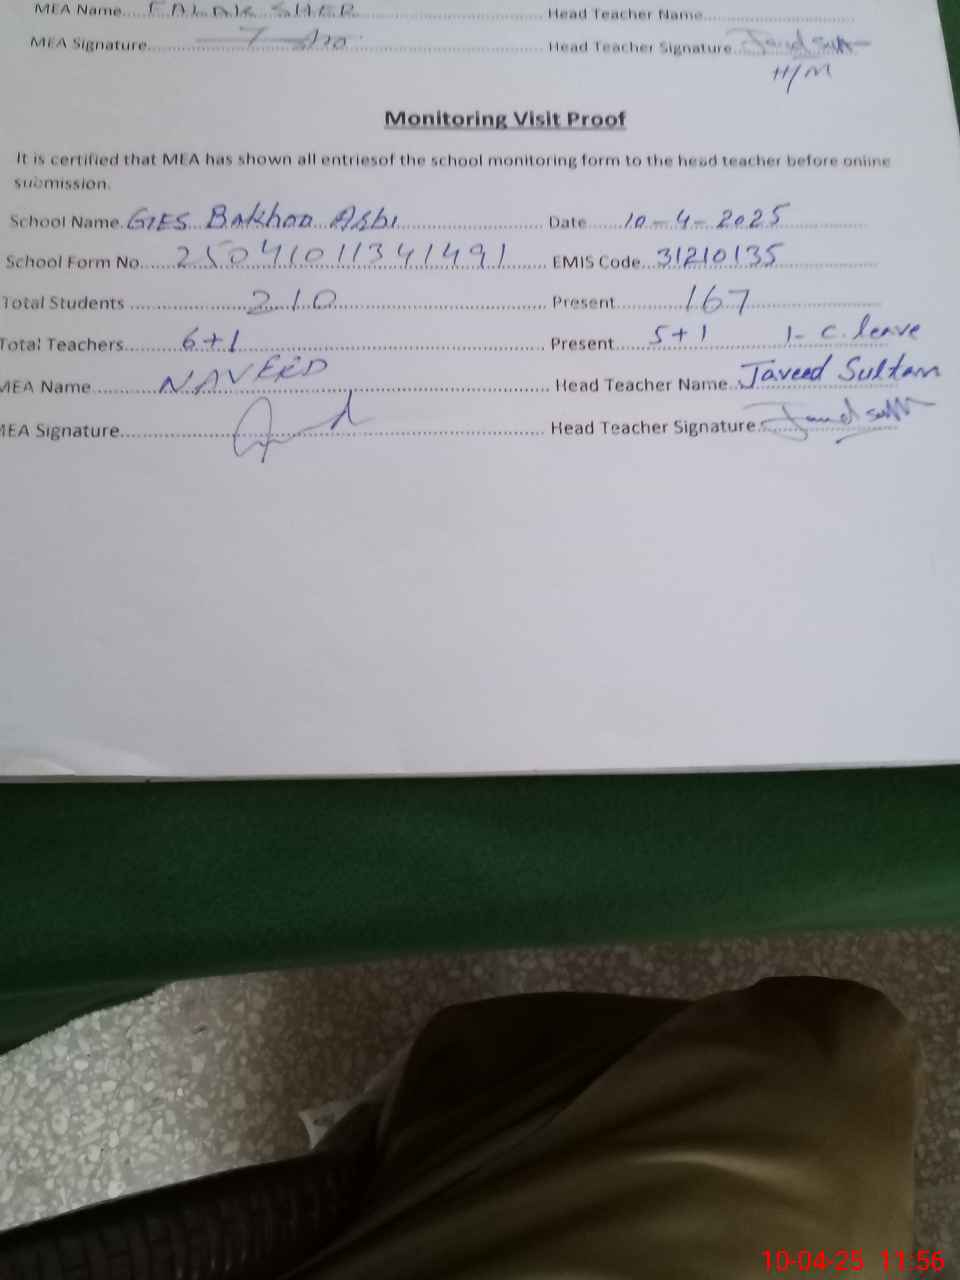 MEA Name FALAK SHER Head Teacher Name
MEA Signature Head Teacher Signature
H/M
Monitoring Visit Proof
It is certified that MEA has shown all entriesof the school monitoring form to the head teacher before online
submission.
School Name. GIES Bakhoo Asbi Date 10-4-2025
School Form No. 25041011341491 EMIS Code 31210135
Total Students 210 Present 167
Total Teachers 6+1 Present 5+1 1- C. leave
MEA Name NAVEED Head Teacher Name Javeed Sultan
MEA Signature Head Teacher Signature
10-04-25 11:56